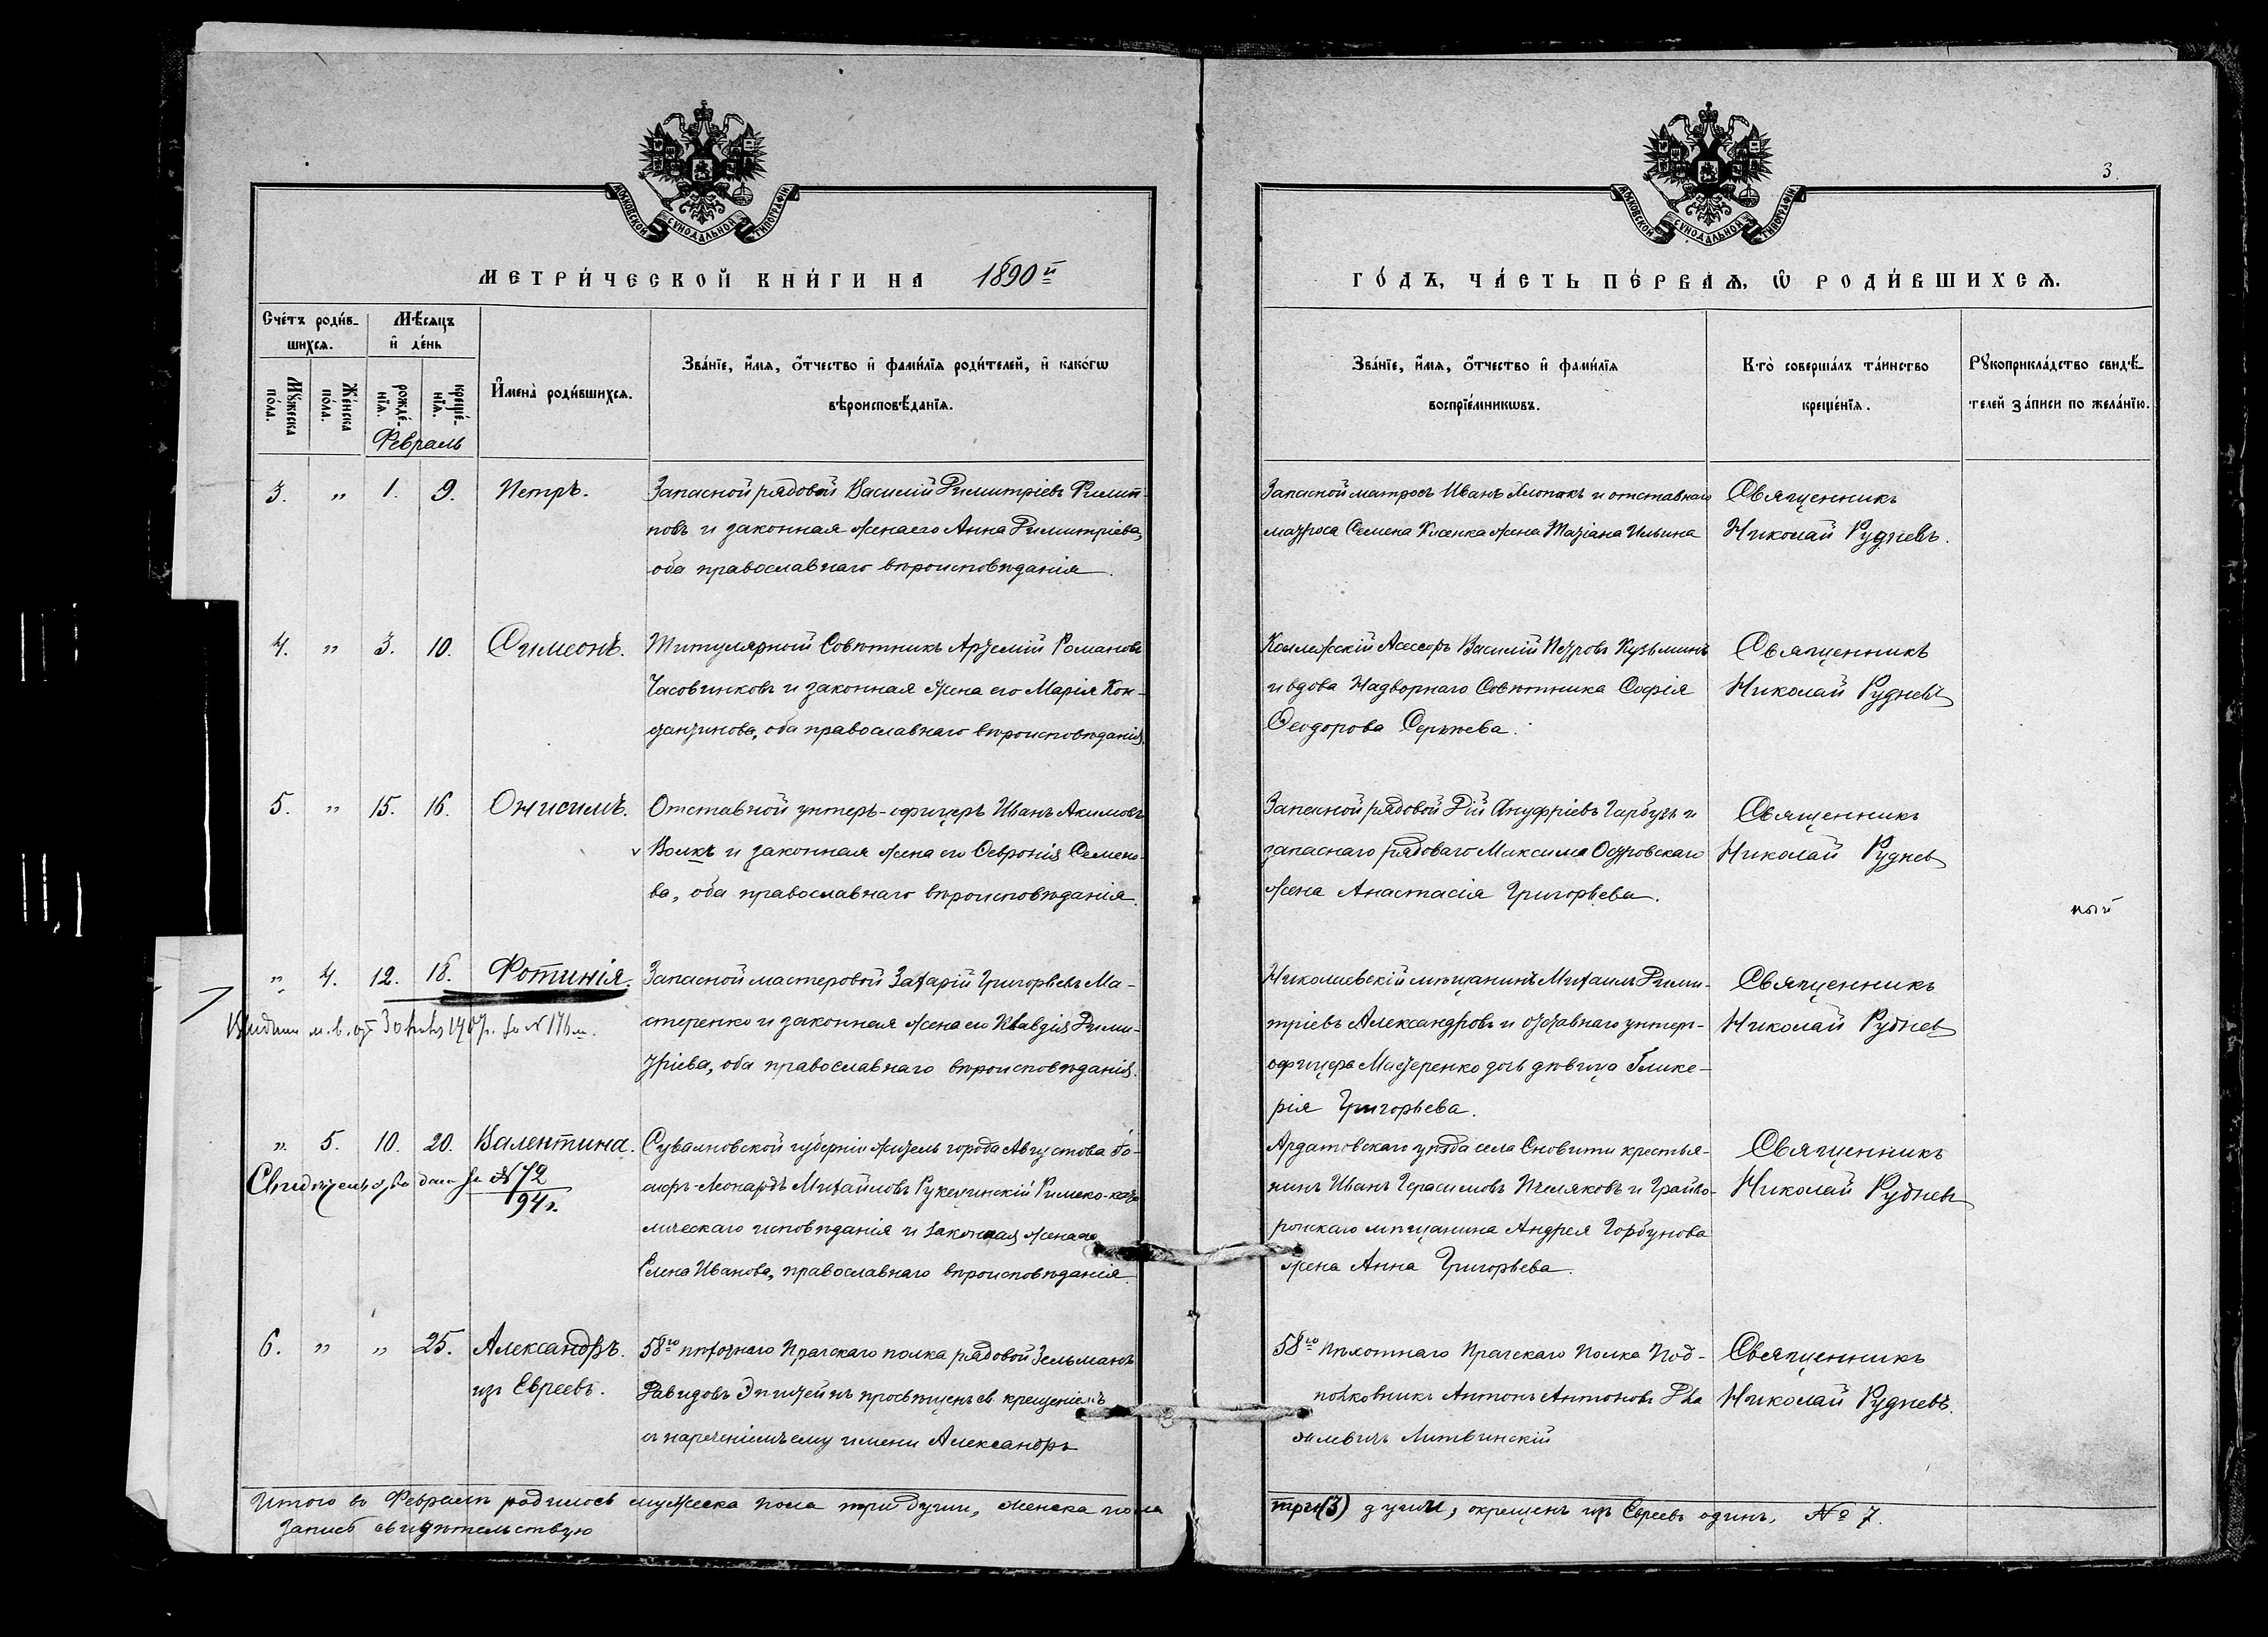 3.
МОСКОВСКОЙ СѴНОДАЛЬНОЙ ТИПОГРАФІИ
МОСКОВСКОЙ СѴНОДАЛЬНОЙ ТИПОГРАФІИ
МЕТРИ́ЧЕСКОЙ КНИ́ГИ НА 1890й
ГО́ДЪ, ЧА́СТЬ ПЕ́РВАѦ, Ѡ РОДИ́ВШИХСѦ.
Сче́тъ роди́в-
шихсѧ.
Мꙋжеска по́ла.
Же́нска по́ла.
Мѣ́сѧцъ
и де́нь
рожде́-нїѧ.
креще́-нїѧ.
Февраль
Имена̀ роди́вшихсѧ.
Зва́нїе, и́мѧ, о́тчество и фами́лїѧ роди́телей, и како́гѡ
вѣроисповѣ́данїѧ.
Зва́нїе, и́мѧ, о́тчество и фами́лїѧ
воспрїе́мникѡвъ.
Кто̀ соверша́лъ та́инство
креще́нїѧ.
Рꙋкоприкла́дство свидѣ́-
телей за́писи по жела́нїю.
3. " 1. 9. Петръ.
Запасной рядовой Василій Димитріевъ Филип-
повъ и законная жена его Анна Димитріева,
оба православнаго вѣроисповѣданія.
Запасной матросъ Иванъ и отставнаго
матроса Семена жена Татіана Ильина
Священникъ
Николай Рудневъ.
4. " 3. 10. Симеонъ.
Титулярный Совѣтникъ Артемій Романовъ
Часовниковъ и законная жена его Марія Кон-
стантинова, оба православнаго вѣроисповѣданія.
Коллежскій Асессоръ Василій Петровъ Кузьминъ
и вдова Надворнаго Совѣтника Софія
Ѳеодорова Сергѣева.
Священникъ
Николай Рудневъ
5. " 15. 16. Онисимъ.
Отставной унтеръ-офицеръ Иванъ Акимовъ
Волкъ и законная жена его Ѳевронія Семено-
ва, оба православнаго вѣроисповѣданія.
Запасной рядовой Ануфріевъ Гарбузъ и
запаснаго рядоваго Максима Островскаго
жена Анастасія Григорьева.
Священникъ
Николай Рудневъ
ный
" 4. 12. 18. Фотинія.
Запасной мастеровой Захарій Григорьевъ Ма-
стеренко и законная жена его Клавдія Дими-
тріева, оба православнаго вѣроисповѣданія.
Николаевскій мѣщанинъ Михаилъ Дими-
тріевъ Александровъ и отставнаго унтеръ-
офицера Мастеренко дочь дѣвица Глике-
рія Григорьева.
Священникъ
Николай Рудневъ
м. в. от 30 1907г. за № 171
" 5. 10. 20. Валентина.
Сувалковской губерніи житель города Августова
Леонардъ Михайловъ Римско-като-
лическаго исповѣданія и законная жена его
Елена Иванова, православнаго вѣроисповѣданія.
Ардатовскаго уѣзда села крестья-
нинъ Иванъ Герасимовъ Пчеляковъ и Грайво-
ронскаго мѣщанина Андрея Горбунова
жена Анна Григорьева.
Священникъ
Николай Рудневъ
Свидѣтельство дано за № 72
94г.
6. " " 25. Александръ.
изъ Евреевъ.
58го пѣхотнаго Прагскаго полка рядовой Зельманъ
Давидовъ Эпштейнъ просвѣщенъ св. крещеніемъ
съ нареченіемъ ему имени Александръ
58го Пѣхотнаго Прагскаго Полка Под-
полковникъ Антонъ Антоновъ
Литвинскій
Священникъ
Николай Рудневъ.
Итого въ Февралѣ родилось мужеска пола три души, женска пола
три (3) души, окрещенъ изъ Евреевъ одинъ, № 7.
Запись свидѣтельствую